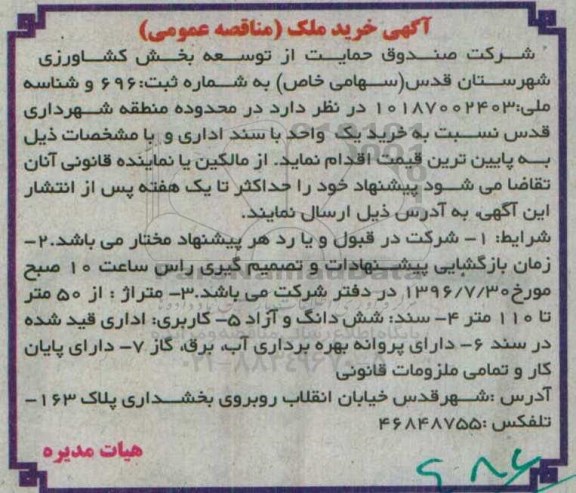 آگهی خرید ملک (مناقصه عمومی)
شرکت صندوق حمایت از توسعه بخش کشاورزی
شهرستان قدس(سهامی خاص) به شماره ثبت:۶۹۶ و شناسه
ملی:۱۰۱۸۷۰۰۲۴۰۳ در نظر دارد در محدوده منطقه شهرداری
قدس نسبت به خرید یک واحد با سند اداری و با مشخصات ذیل
به پایین ترین قیمت اقدام نماید. از مالکین یا نماینده قانونی آنان
تقاضا می شود پیشنهاد خود را حداکثر تا یک هفته پس از انتشار
این آگهی، به آدرس ذیل ارسال نمایند.
شرایط: ۱- شرکت در قبول و یا رد هر پیشنهاد مختار می باشد.۲-
زمان بازگشایی پیشنهادات و تصمیم گیری راس ساعت ۱۰ صبح
مورخ۱۳۹۶/۷/۳۰ در دفتر شرکت می باشد.۳- متراژ : از ۵۰ متر
تا ۱۱۰ متر ۴- سند: شش دانگ و آزاد ۵- کاربری: اداری قید شده
در سند ۶- دارای پروانه بهره برداری آب، برق، گاز ۷- دارای پایان
کار و تمامی ملزومات قانونی
آدرس :شهرقدس خیابان انقلاب روبروی بخشداری پلاک ۱۶۳-
تلفکس :۴۶۸۴۸۷۵۵
هیات مدیره